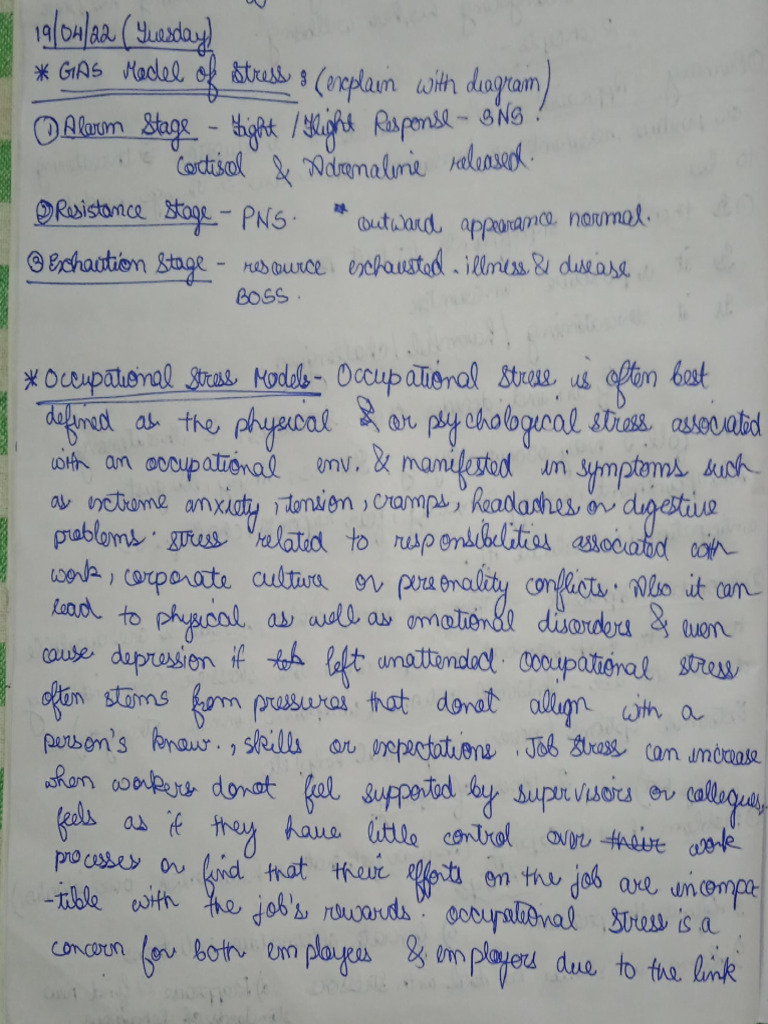 19/04/22 (Tuesday)
* GAS Model of Stress : (explain with diagram)
① Alarm Stage - Fight / Flight Response - SNS.
Cortisol & Adrenaline released.
② Resistance Stage - PNS. * outward appearance normal.
③ Exhaction Stage - resource exhausted. illness & disease
BOSS.
* Occupational Stress Models - Occupational Stress is often best
defined as the physical & or psychological stress associated
with an occupational env. & manifested in symptoms such
as extreme anxiety, tension, cramps, headaches or digestive
problems. Stress related to responsibilities associated with
work, corporate culture or personality conflicts. Also it can
lead to physical as well as emotional disorders & even
cause depression if left unattended. Occupational stress
often stems from pressures that donot allign with a
person's know., skills or expectations. Job Stress can increase
when workers donot feel supported by supervisors or collegues,
feels as if they have little control over their work
processes or find that their efforts on the job are incompa
-tible with the job's rewards. Occupational Stress is a
concern for both employees & employers due to the link